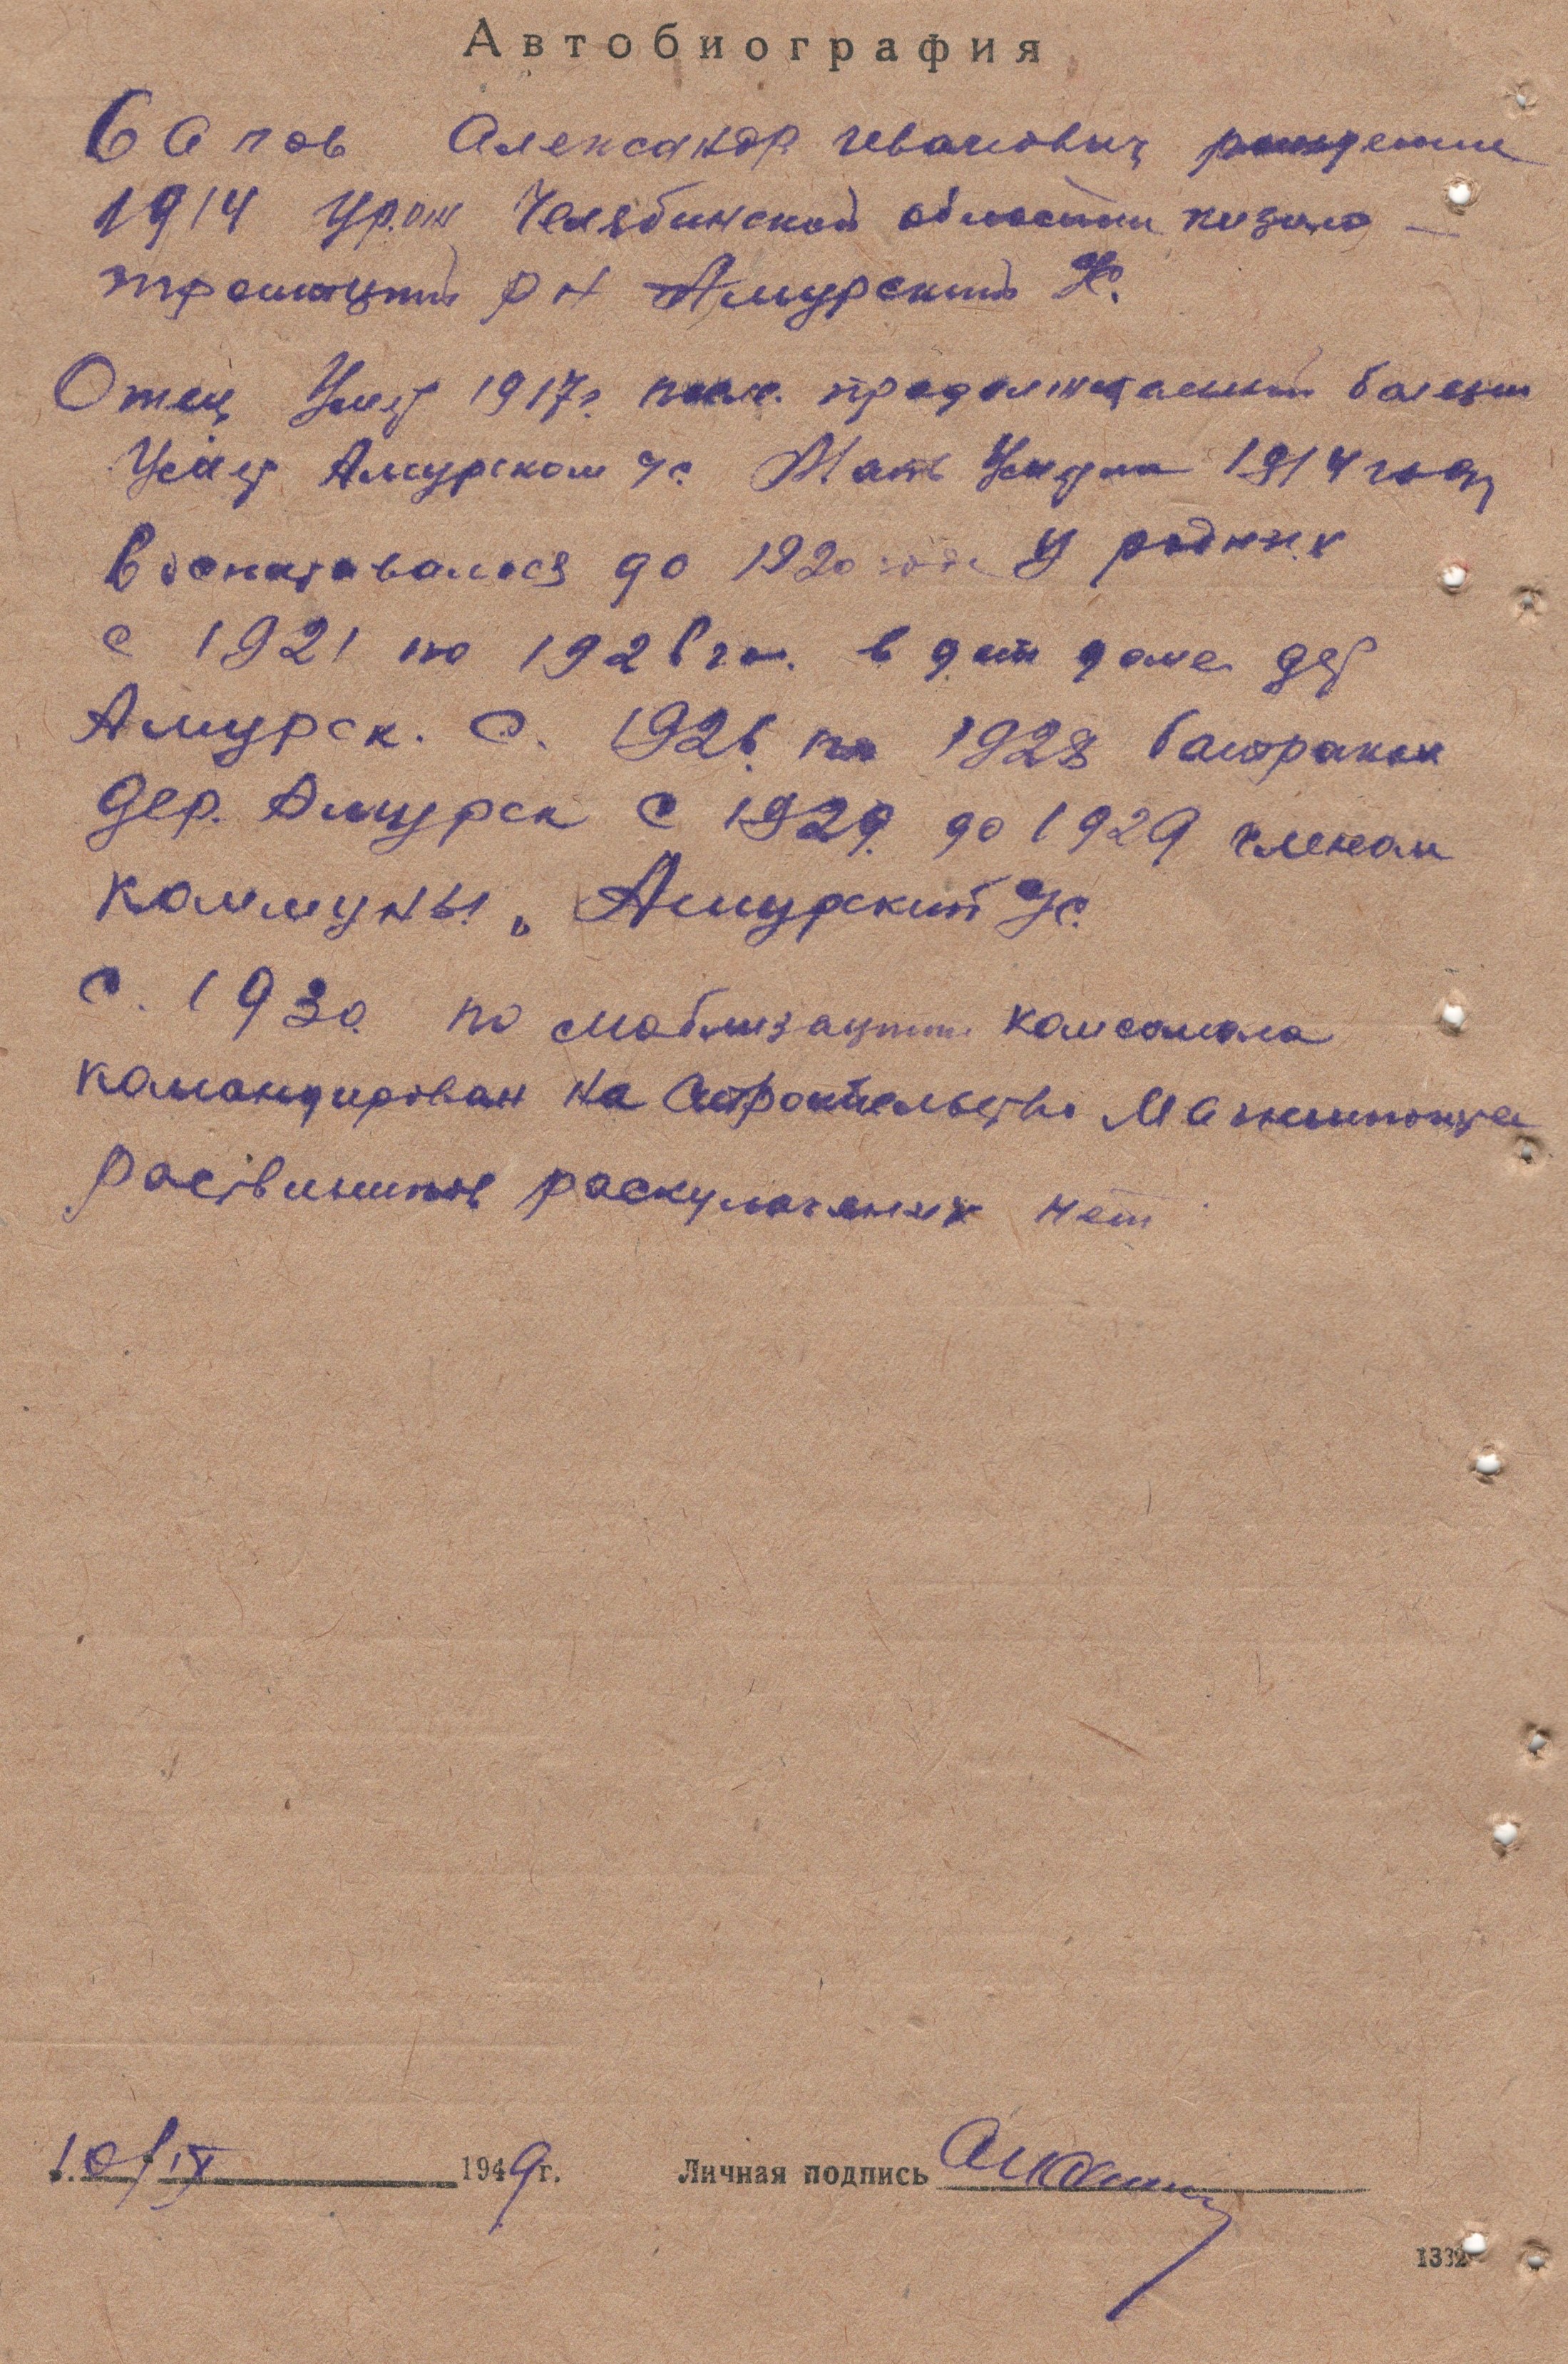 Автобиография
Сапов Александр Иванович рождение
1914 Урож Челябинской области кизило -
троицкий р н Амурский
Отец Умер 1917г. после продолжительный болезни
Умер Амурском Мать Умерла 1914 году
Воспитовался до 1920 года у родных
с 1921 по 1926 г. в дет доме дер
Амурск. С. 1926. по 1928 батраком
дер. Амурск с 1929. до 1929 членом
коммуны „ Амурский
С. 1930. по мобилизации комсомола
командирован на строительство Магнитки
раскулаченых нет
10/IX 1949г. Личная подпись
1332